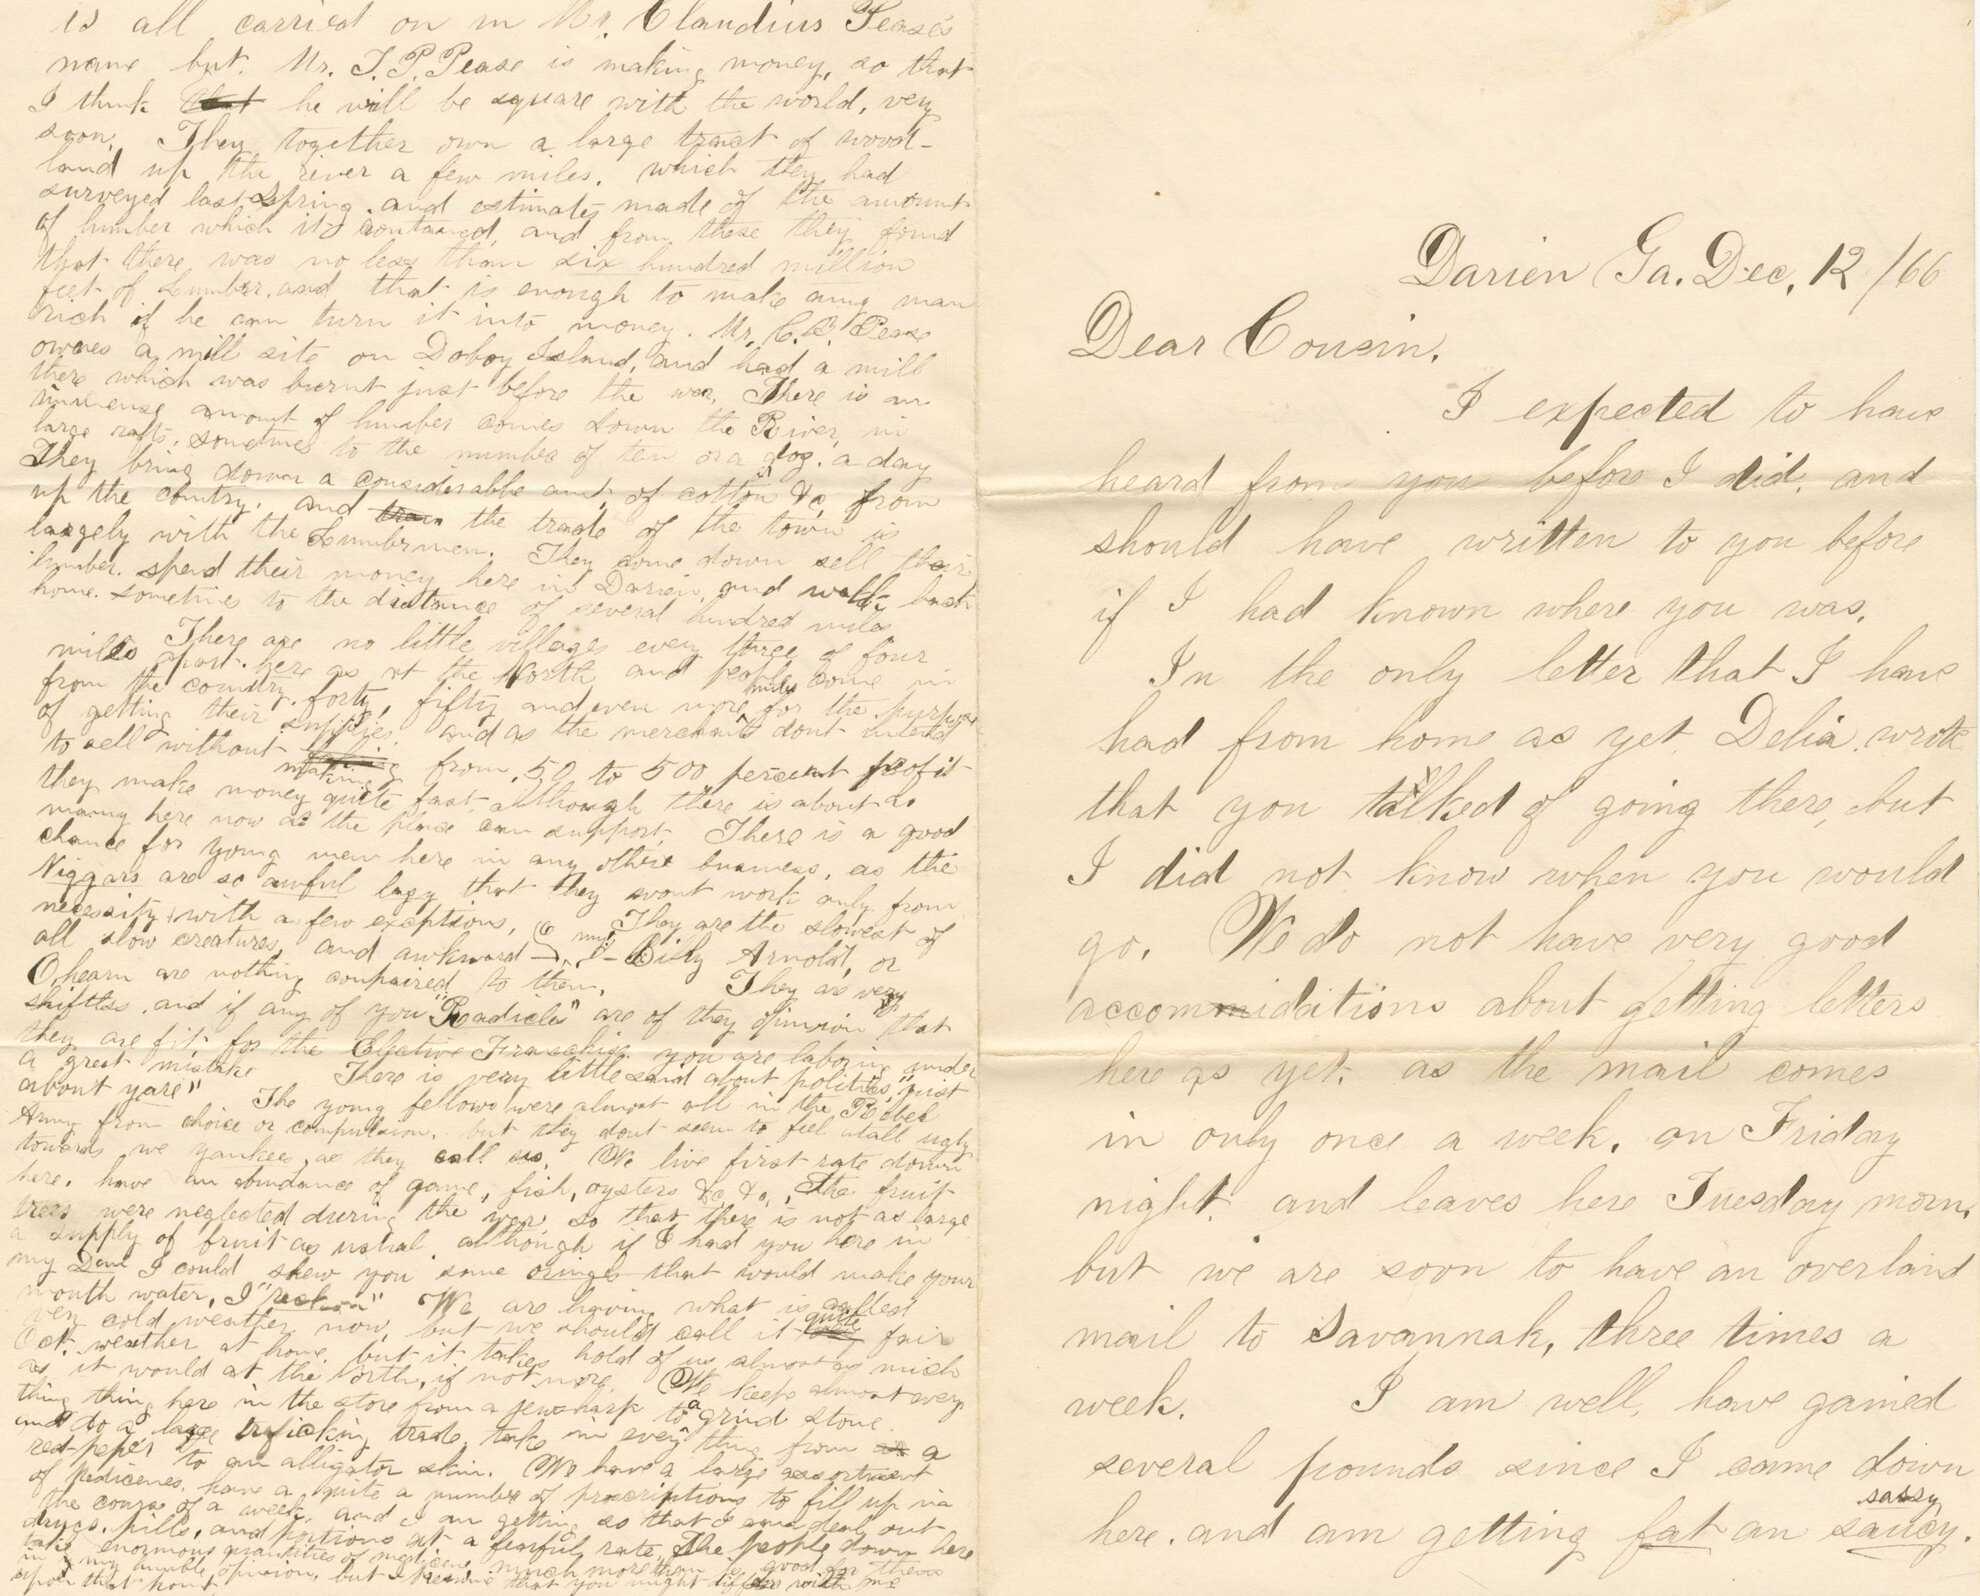 Darien Ga. Dec, 12 /66
Dear Cousin.
I expected to have
heard from you before I did, and
should have written to you before
if I had known where you was.
In the only letter that I have
had from home as yet Delia wrote
that you talked of going there, but
I did not know when you would
go. We do not have very good
accommidations about getting letters
here as yet, as the mail comes
in only once a week, on Friday
night, and leaves here Tuesday morn,
but we are soon to have an overland
mail to Savannah, three times a
week. I am well, have gained
several pounds since I came down
sassy
here. and am getting fat an saucy.
is all carried on in Mr. Claudius Pease's
name but Mr. T. P. Pease is making money, so that
I think that he will be square with the world, very
soon. They together own a large tract of wood-
land up the river a few miles. which they had
surveyed last Spring. and estimates made of the amount
of lumber which it contained, and from these they found
that there was no less than six hundred million
feet of Lumber. and that is enough to make any man
rich if he can turn it into money. Mr. C. B. Pease
ownes a mill site on Doboy Island, and had a mill
there which was burnt just before the war, There is an
immense amount of lumber comes down the River, in
large rafts, sometimes to the number of ten or a doz. a day
They bring down a considerable amt. of cotton &c, from
up the country. and the trade of the town is
largely with the Lumbermen. They come down sell their
lumber. spend their money here in Darien, and walk back
home. sometimes to the distance of several hundred miles
There are no little villages every three or four
miles apart. here as at the North and people come in
from the country. forty, fifty and even more miles for the purpose
of getting their supplies. and as the merchants dont intend
to sell without making from 50 to 500 percent profit
they make money quite fast although there is about as
many here now as the place can support. There is a good
chance for young men here in any other business, as the
Niggars are so awful lazy that they wont work only from
necessity, with a few exeptions, They are the slowest of
all slow creatures, and awkward Billy Arnold, or
Ohearn are nothing compaired to them. They are very
shiftless. and if any of you "Radicles" are of they opinion that
they are fit for the Elective Franchise you are laboring under
a great mistake There is very little said about politics, "jist
about yare" The young fellows were almost all in the Rebel
Army from choice or compulsion. but they dont seem to feel atall ugly
towards we yankees, as they call us. We live first rate down
here, have an abundance of game, fish, oysters &c, &c, The fruit
trees were neglected during the war, so that there is not as large
a supply of fruit as usual, although if I had you here in
my Den I could shew you some oringes that would make your
mouth water, I "reckon" We are having what is called
very cold weather now, but we should call it quite fair
Oct. weather at home, but it takes hold of us almost as much
as it would at the North, if not more. We keep almost every
thing thing here in the store from a jewsharp to a grind stone
and do a large traficking trade, take in every thing from a
red-peper to an alligator skin. We have a large assortment
of medicenes, have a quite a number of prescriptions to fill up in
the course of a week, and I am getting so that I can deal out
drugs, pills, and potions at a fearful rate, The people down here
take enormous quantities of medicene, much more than is good for them
in my humble opinion, but I presume that you might differ with me
upon that point.